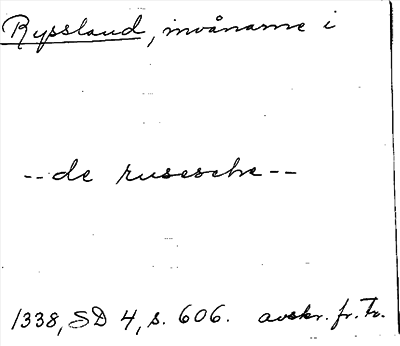 Ryssland, invånarne i
-- de rusesche --
1338, SD 4, s. 606. avskr. fr. Tr.